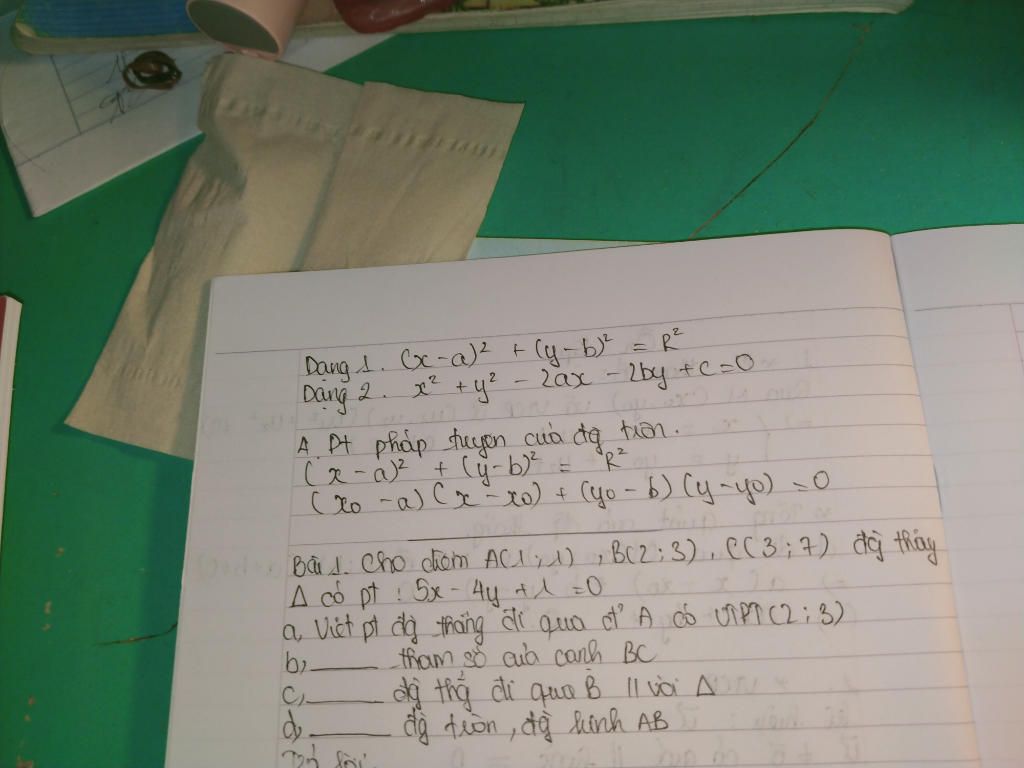 Dạng 1. (x-a)² + (y-b)² = R²
Dạng 2. x² + y² - 2ax - 2by + c = 0
A. Pt pháp tuyen của đg tròn.
(x-a)² + (y-b)² = R²
(x0 - a)(x - x0) + (y0 - b)(y - y0) = 0
Bài 1. Cho điểm A(1;1), B(2;3), C(3;7) đg thảy
Δ có pt: 5x - 4y + 1 = 0
a, Viết pt đg thẳng đi qua đ' A có VTPT(2;3)
b, ____ tham số của cạnh BC
c, ____ đg thg đi qua B // với Δ
d, ____ đg tròn, đg kính AB